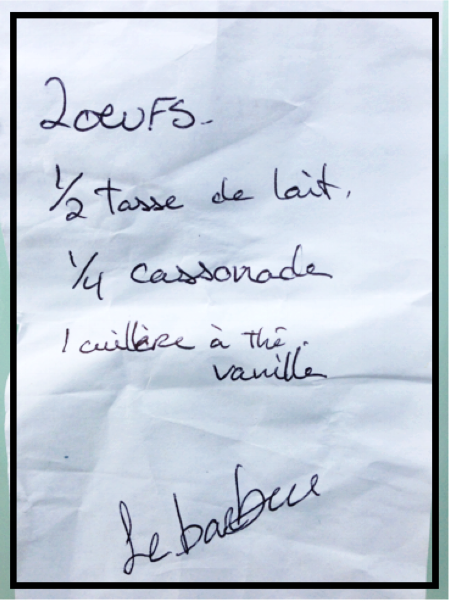 2 oeufs.
1/2 tasse de lait.
1/4 cassonade
1 cuillère à thé.
vanille
Le barbu